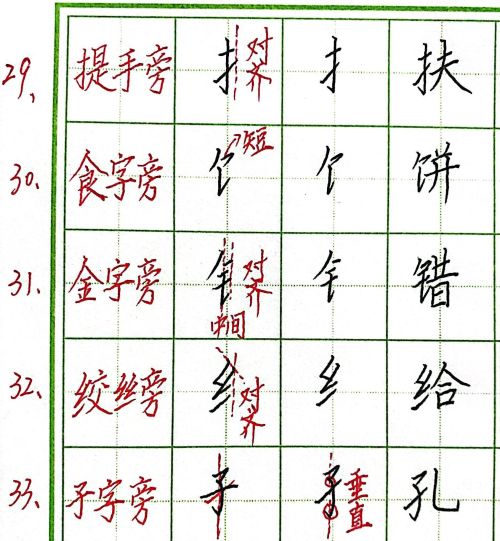 29、 提手旁 扌 对齐 扌 扶
30、 食字旁 饣 短 饣 饼
31、 金字旁 钅 对齐 中间 钅 错
32、 绞丝旁 纟 对齐 纟 给
33、 子字旁 子 子 垂直 孔